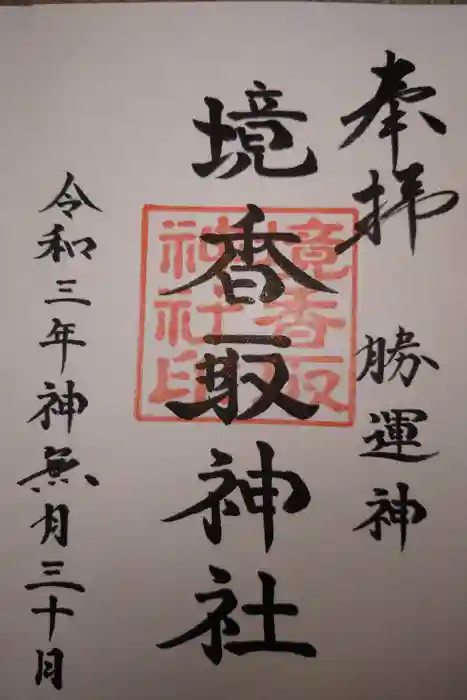 奉拝
勝運神
境香取神社
境香取神社印
令和三年神無月三十日